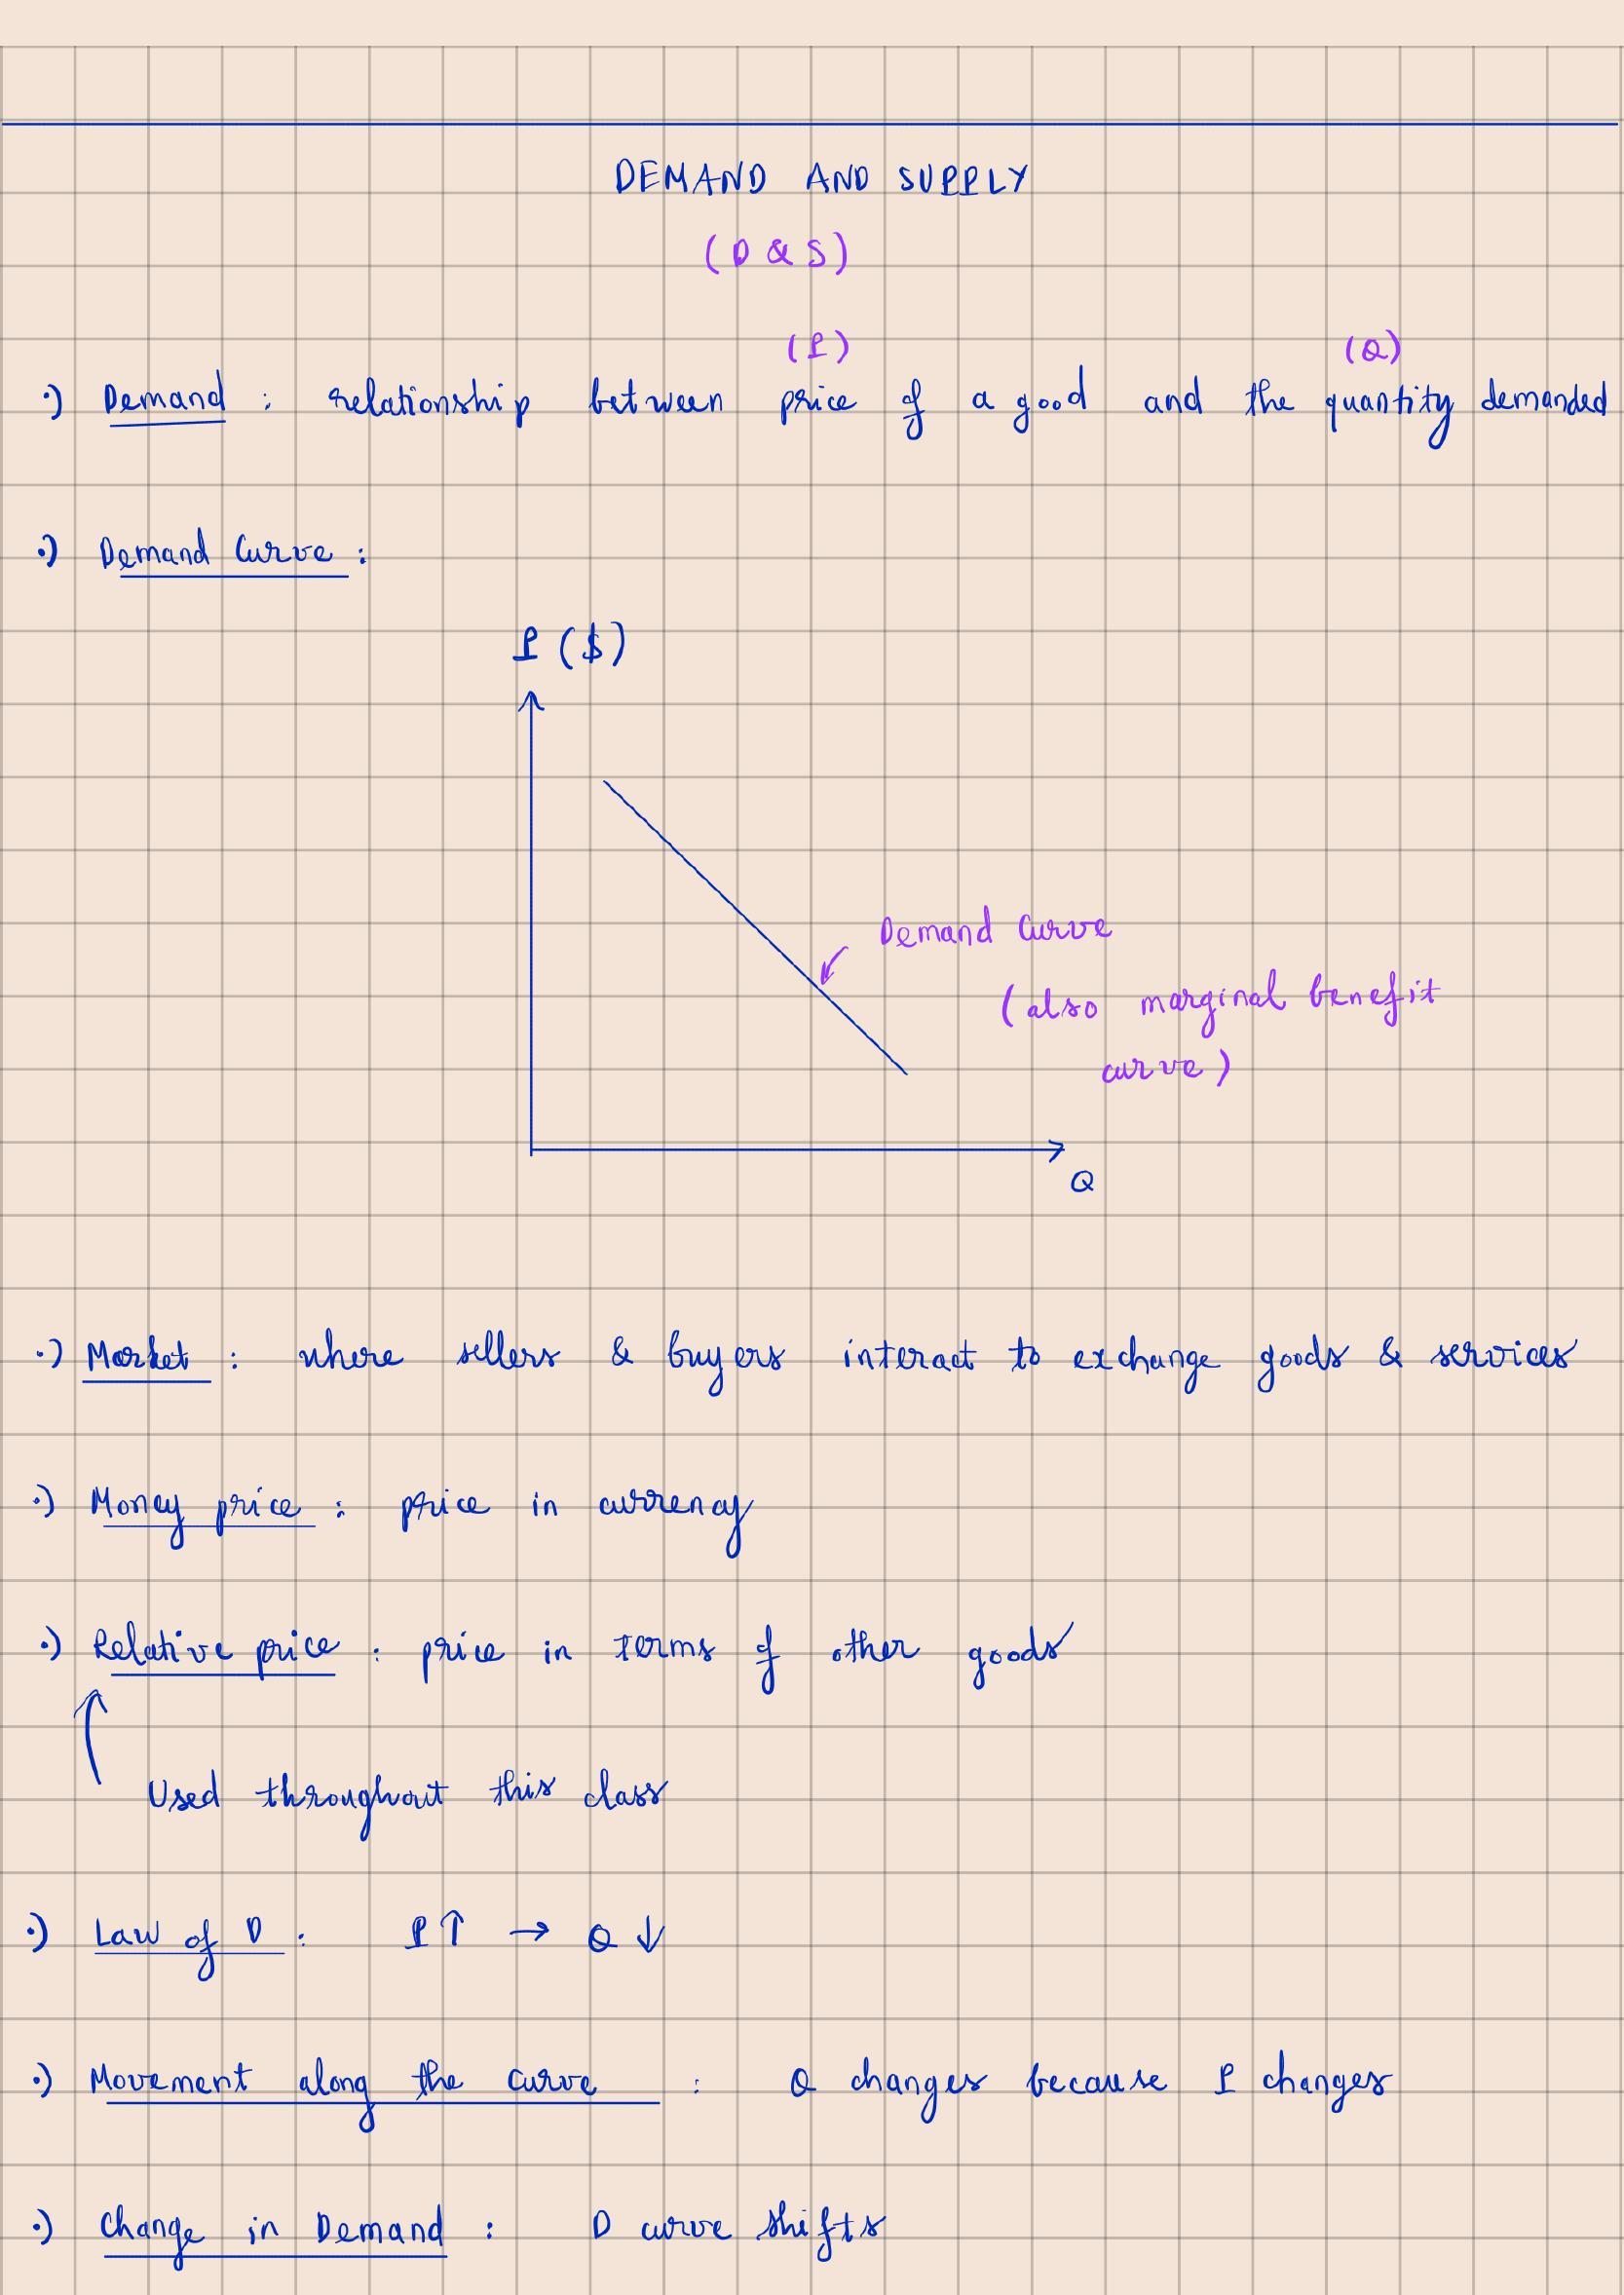 DEMAND AND SUPPLY
(D & S)
(P) (Q)
·) Demand : relationship between price of a good and the quantity demanded
·) Demand Curve :
P ($)
Demand Curve
(also marginal benefit
curve)
Q
·) Market : where sellers & buyers interact to exchange goods & services
·) Money price : price in currency
·) Relative price : price in terms of other goods
Used throughout this class
·) Law of D : P ↑ → Q ↓
·) Movement along the curve : Q changes because P changes
·) Change in Demand : D curve shifts